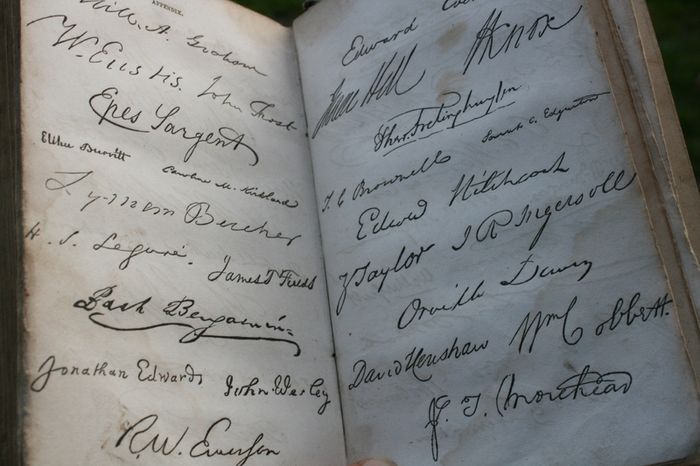 APPENDIX.
Will. A. Graham
W. Eustis. John Frost
Epes Sargent
Elihu Burritt Caroline M. Kirkland
Lyman Beecher
H. S. Legaré. James T Fields
Park Benjamin
Jonathan Edwards John Wesley
R. W. Emerson
Edward
Isaac Hill H Knox
Theo. Frelinghuysen
T. C Brownell Sarah C. Edgarton
Edward Hitchcock
Z Taylor J R Ingersoll
Orville Dewey
David Henshaw Wm Cobbett.
J. T. Morehead